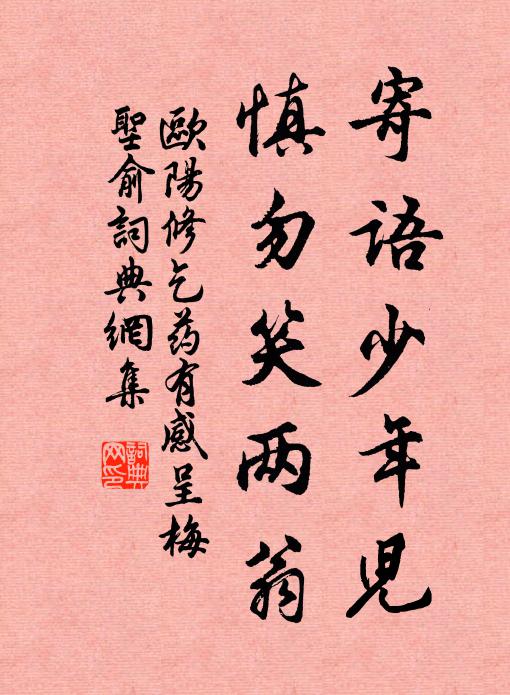 寄语少年児
慎勿笑两翁
歐陽修乞药有感呈梅
聖俞詞典網集
詞典
网印